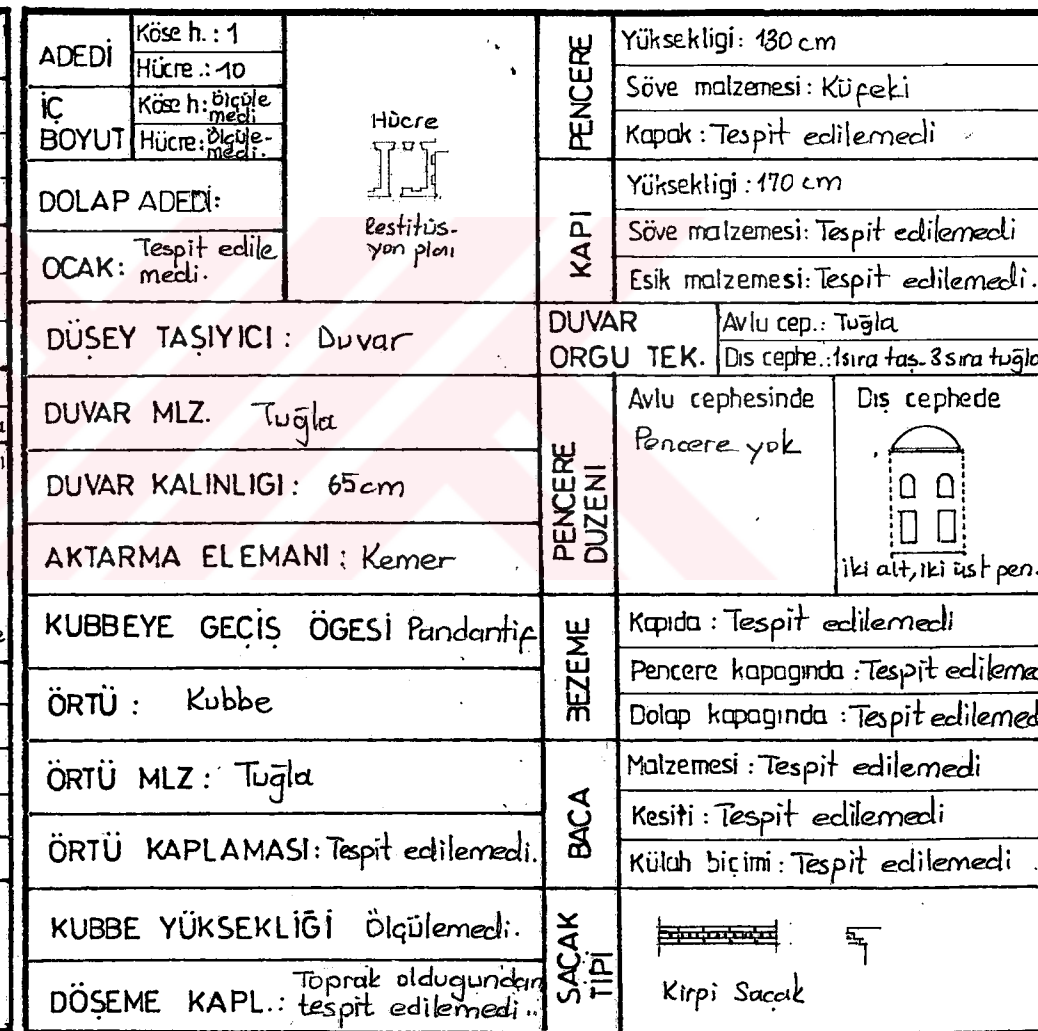 ADEDİ
Köse h. : 1
Hücre .: 10
İÇ BOYUT
Köse h: ölçüle
medi
Hücre: ölçüle-
medi.
DOLAP ADEDİ:
OCAK: Tespit edile
medi.
Hücre
Restitüs-
yon planı
DÜŞEY TAŞIYICI : Duvar
DUVAR MLZ. Tuğla
DUVAR KALINLIGI : 65cm
AKTARMA ELEMANI : Kemer
KUBBEYE GEÇİŞ ÖGESİ Pandantif
ÖRTÜ : Kubbe
ÖRTÜ MLZ : Tuğla
ÖRTÜ KAPLAMASI : Tespit edilemedi.
KUBBE YÜKSEKLİĞİ Ölçülemedi.
DÖŞEME KAPL.: Toprak oldugundan
tespit edilemedi..
PENCERE
Yüksekligi : 130 cm
Söve malzemesi : Küfeki
Kapak : Tespit edilemedi
KAPI
Yüksekligi : 170 cm
Söve malzemesi: Tespit edilemedi
Esik malzemesi: Tespit edilemedi.
DUVAR
ORGU TEK.
Avlu cep.: Tuğla
Dıs cephe.: 1sıra taş-3 sıra tuğla
PENCERE
DUZENI
Avlu cephesinde
Pencere yok
Dış cephede
iki alt, iki üst pen.
BEZEME
Kapıda : Tespit edilemedi
Pencere kapagında : Tespit edileme
Dolap kapagında : Tespit edilemed
BACA
Malzemesi : Tespit edilemedi
Kesiti : Tespit edilemedi
Külah biçimi : Tespit edilemedi .
SACAK
TİPİ
Kirpi Sacak